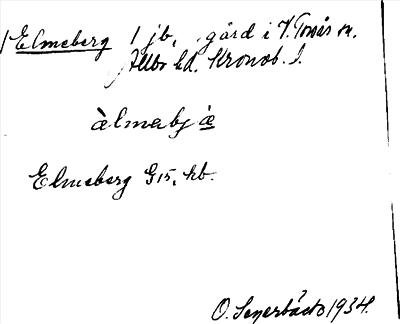 Elmeberg 1 jb, gård i V. Torsås sn.
Allbo hd. Kronob. l.
àlmabj æ
Elmeberg G15, kb.
O. Senerbäck 1934.